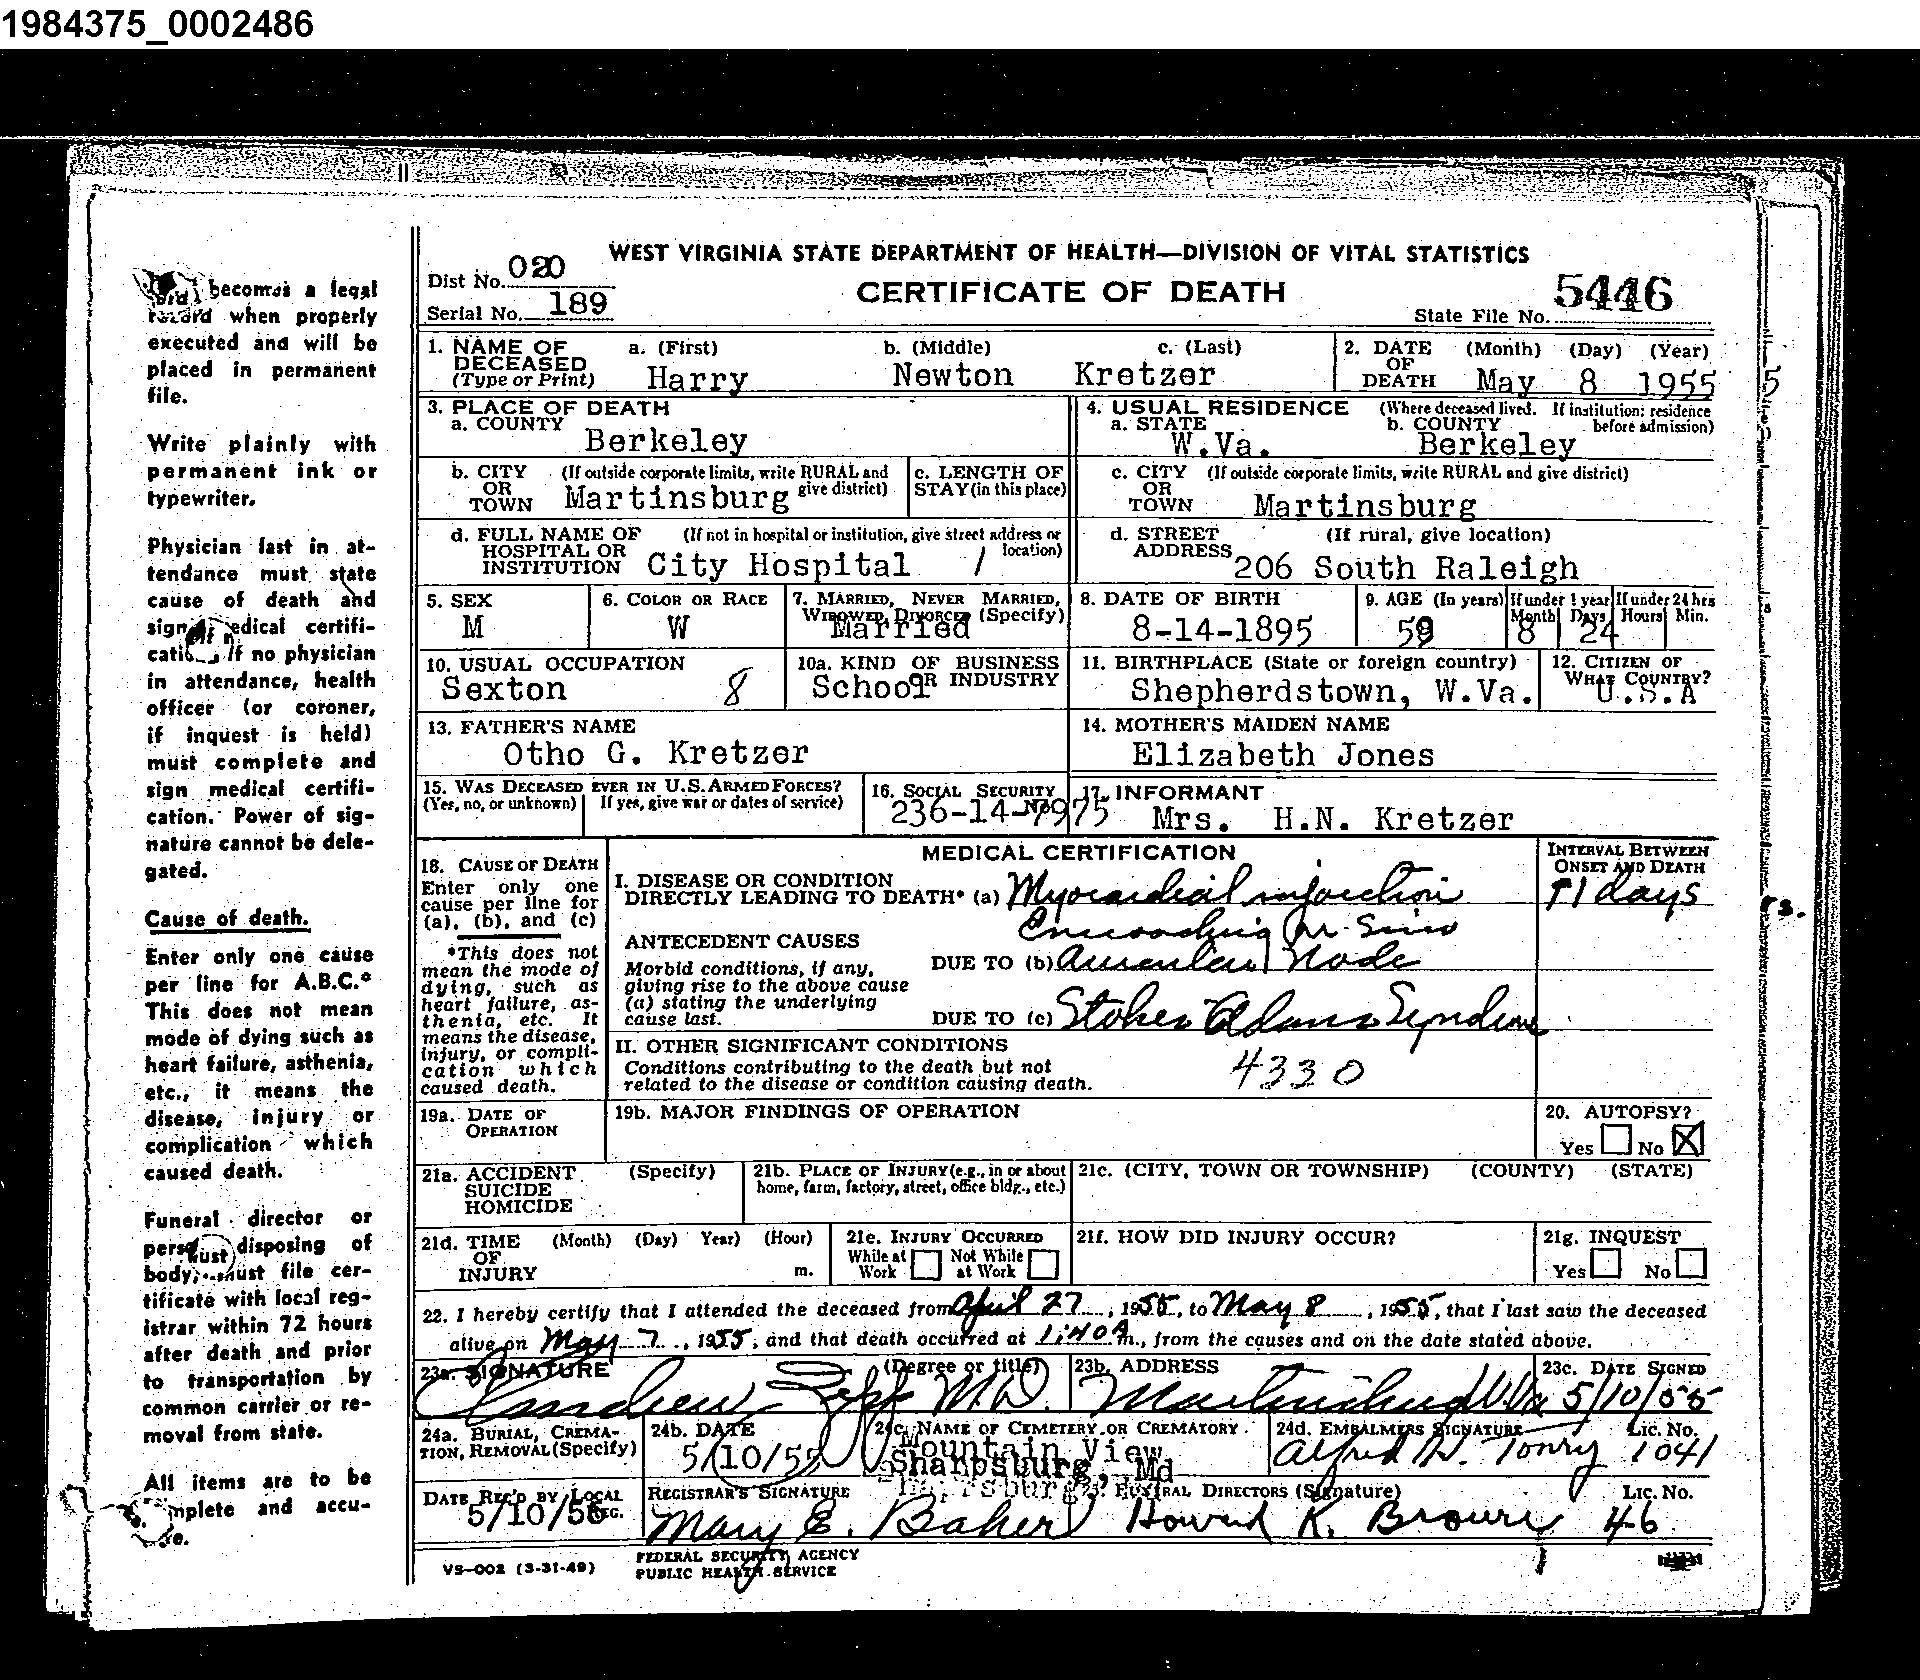 1984375_0002486
becomes a legal
record when properly
executed and will be
placed in permanent
file.
Write plainly with
permanent ink or
typewriter.
Physician last in at-
tendance must state
cause of death and
sign medical certifi-
cation. If no physician
in attendance, health
officer (or coroner,
if inquest is held)
must complete and
sign medical certifi-
cation. Power of sig-
nature cannot be dele-
gated.
Cause of death.
Enter only one cause
per line for A.B.C.*
This does not mean
mode of dying such as
heart failure, asthenia,
etc., it means the
disease, injury or
complication which
caused death.
Funeral director or
person disposing of
body, must file cer-
tificate with local reg-
istrar within 72 hours
after death and prior
to transportation by
common carrier or re-
moval from state.
All items are to be
complete and accu-
WEST VIRGINIA STATE DEPARTMENT OF HEALTH—DIVISION OF VITAL STATISTICS
Dist No. 020
CERTIFICATE OF DEATH
Serial No. 189
State File No. 5446
1. NAME OF DECEASED (Type or Print) a. (First) Harry b. (Middle) Newton c. (Last) Kretzer
2. DATE OF DEATH (Month) (Day) (Year) May 8 1955
3. PLACE OF DEATH
a. COUNTY Berkeley
4. USUAL RESIDENCE (Where deceased lived. If institution: residence before admission)
a. STATE W.Va. b. COUNTY Berkeley
b. CITY OR TOWN (If outside corporate limits, write RURAL and give district) Martinsburg
c. LENGTH OF STAY (in this place)
c. CITY OR TOWN (If outside corporate limits, write RURAL and give district) Martinsburg
d. FULL NAME OF HOSPITAL OR INSTITUTION (If not in hospital or institution, give street address or location) City Hospital 1
d. STREET ADDRESS (If rural, give location) 206 South Raleigh
5. SEX M
6. COLOR OR RACE W
7. MARRIED, NEVER MARRIED, WIDOWED, DIVORCED (Specify) Married
8. DATE OF BIRTH 8-14-1895
9. AGE (In years) 59 If under 1 year Month 8 Days 24 If under 24 hrs Hours Min.
10. USUAL OCCUPATION Sexton 8
10a. KIND OF BUSINESS OR INDUSTRY School
11. BIRTHPLACE (State or foreign country) Shepherdstown, W.Va.
12. CITIZEN OF WHAT COUNTRY? U.S.A
13. FATHER'S NAME Otho G. Kretzer
14. MOTHER'S MAIDEN NAME Elizabeth Jones
15. WAS DECEASED EVER IN U.S. ARMED FORCES? (Yes, no, or unknown) If yes, give war or dates of service)
16. SOCIAL SECURITY No. 236-14-7975
17. INFORMANT Mrs. H.N. Kretzer
MEDICAL CERTIFICATION
INTERVAL BETWEEN ONSET AND DEATH
18. CAUSE OF DEATH
Enter only one cause per line for (a), (b), and (c)
*This does not mean the mode of dying, such as heart failure, asthenia, etc. It means the disease, injury, or complication which caused death.
I. DISEASE OR CONDITION DIRECTLY LEADING TO DEATH* (a) Myocardial infarction 11 days
ANTECEDENT CAUSES
Morbid conditions, if any, giving rise to the above cause (a) stating the underlying cause last.
Encroaching Sino
DUE TO (b) Auricular Node
DUE TO (c) Stokes Adams Syndrome
II. OTHER SIGNIFICANT CONDITIONS
Conditions contributing to the death but not related to the disease or condition causing death.
4330
19a. DATE OF OPERATION
19b. MAJOR FINDINGS OF OPERATION
20. AUTOPSY? Yes No
21a. ACCIDENT SUICIDE HOMICIDE (Specify)
21b. PLACE OF INJURY (e.g., in or about home, farm, factory, street, office bldg., etc.)
21c. (CITY, TOWN OR TOWNSHIP) (COUNTY) (STATE)
21d. TIME OF INJURY (Month) (Day) Year) (Hour) m.
21e. INJURY OCCURRED While at Work Not While at Work
21f. HOW DID INJURY OCCUR?
21g. INQUEST Yes No
22. I hereby certify that I attended the deceased from April 27, 1955, to May 8, 1955, that I last saw the deceased
alive on May 7, 1955, and that death occurred at 1:40 A m., from the causes and on the date stated above.
23a. SIGNATURE (Degree or title) Andrew Zepp M.D.
23b. ADDRESS Martinsburg W.Va
23c. DATE SIGNED 5/10/55
24a. BURIAL, CREMATION, REMOVAL (Specify)
24b. DATE 5/10/55
24c. NAME OF CEMETERY OR CREMATORY Mountain View Sharpsburg, Md
24d. EMBALMERS SIGNATURE Alfred H. Tonry Lic. No. 1041
DATE REC'D BY LOCAL REG. 5/10/55
REGISTRAR'S SIGNATURE Mary E. Baker
FUNERAL DIRECTORS (Signature) Howard K. Browne Lic. No. 46
VS-002 (3-31-49)
FEDERAL SECURITY AGENCY
PUBLIC HEALTH SERVICE